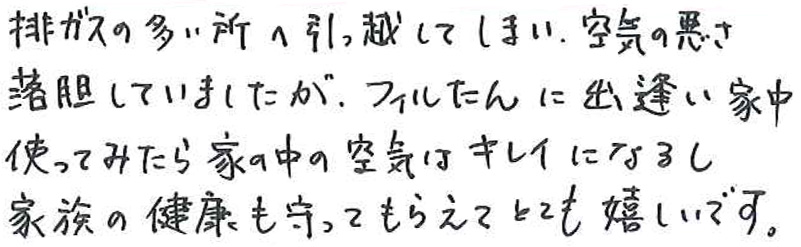 排ガスの多い所へ引っ越してしまい、空気の悪さ
落胆していましたが、フィルたんに出逢い家中
使ってみたら家の中の空気はキレイになるし
家族の健康も守ってもらえてとても嬉しいです。